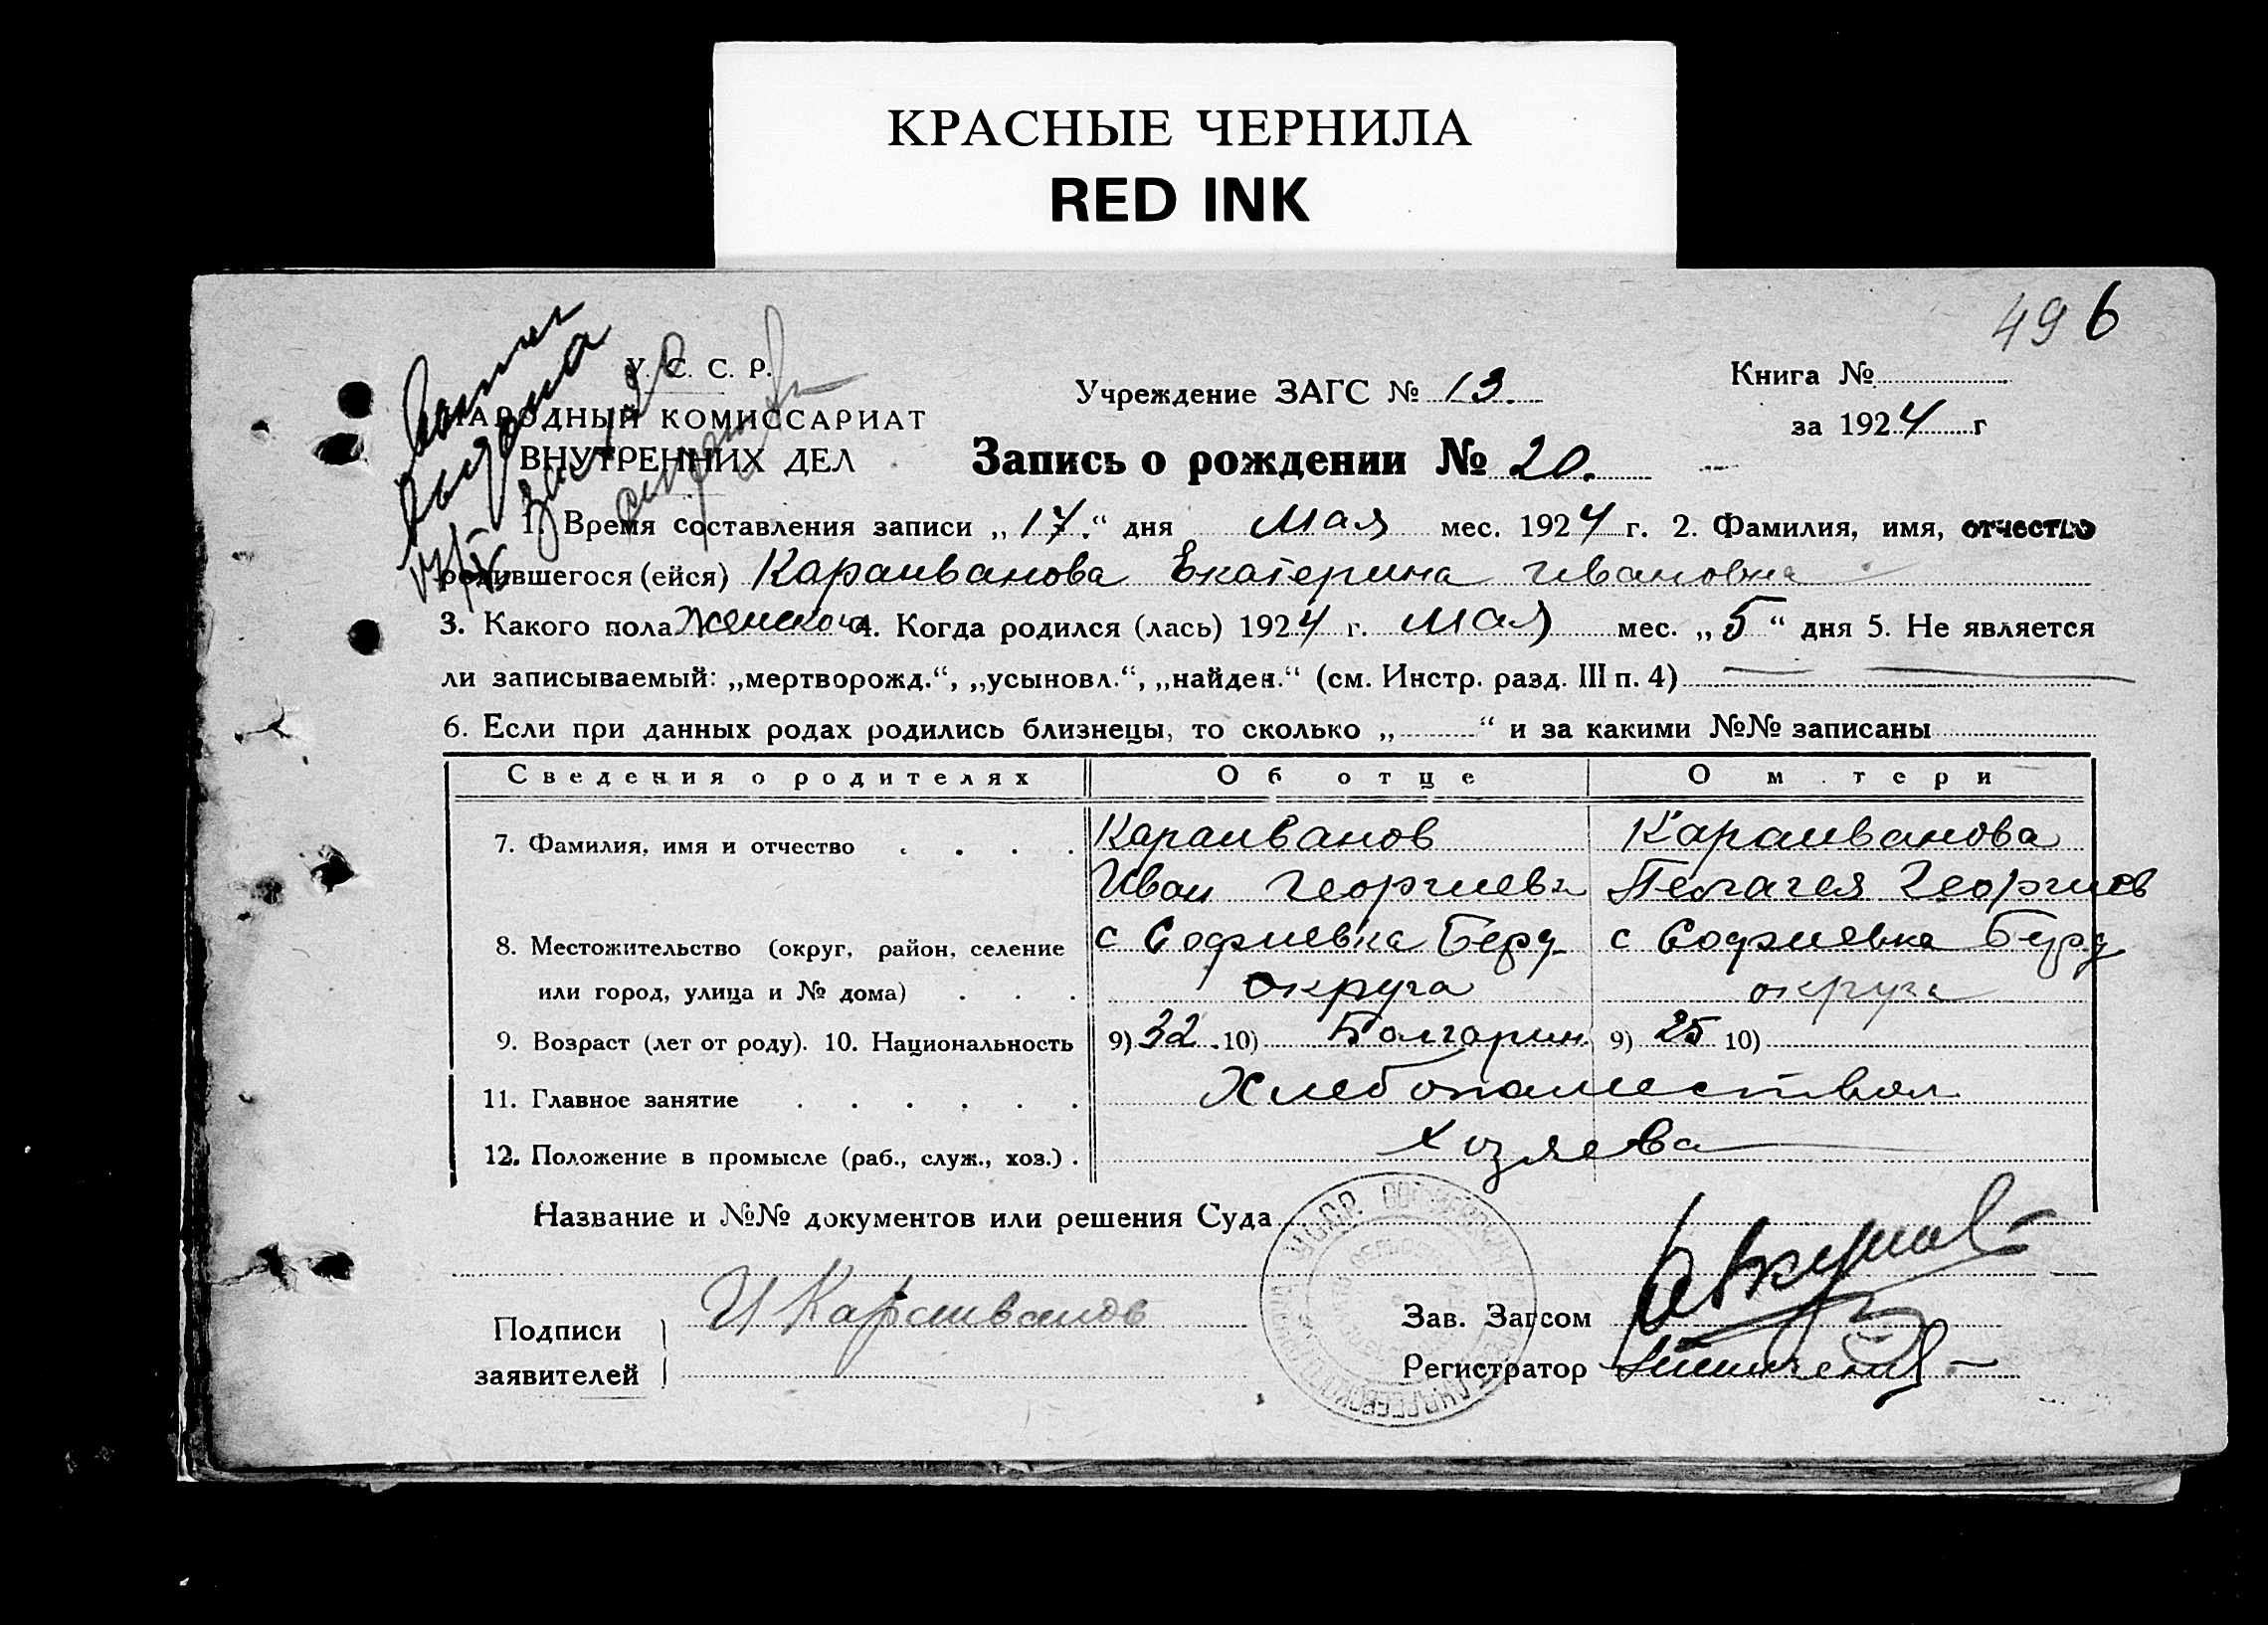 КРАСНЫЕ ЧЕРНИЛА
RED INK
496
У. С. С. Р.
НАРОДНЫЙ КОМИССАРИАТ
ВНУТРЕННИХ ДЕЛ
Учреждение ЗАГС № 13.
Книга №
за 1924 г
Запись о рождении № 20.
1. Время составления записи „17.“ дня Мая мес. 1924 г. 2. Фамилия, имя, отчество
родившегося (ейся) Караиванова Екатерина Ивановна
3. Какого пола женского 4. Когда родился (лась) 1924 г. Мая мес. „5“ дня 5. Не является
ли записываемый: „мертворожд.“, „усыновл.“, „найден.“ (см. Инстр. разд. III п. 4)
6. Если при данных родах родились близнецы, то сколько „ “ и за какими №№ записаны
Сведения о родителях Об отце О м тери
7. Фамилия, имя и отчество . . . . Караиванов Караиванова
Иван Георгиев Пелагея Георгиев
8. Местожительство (округ, район, селение с Софиевка Берд с Софиевка Берд
или город, улица и № дома) . . . округа округа
9. Возраст (лет от роду). 10. Национальность 9) 32. 10) Болгарин 9) 25 10)
11. Главное занятие . . . . . . Хлебопашество
12. Положение в промысле (раб., служ., хоз.) . хозяева
Название и №№ документов или решения Суда
Подписи
заявителей
И Караиванов
Зав. Загсом
Регистратор